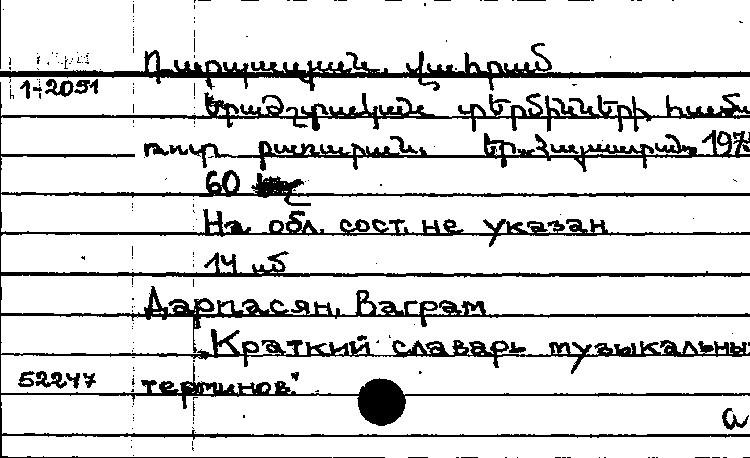 Դարպասյան, Վահրամ
1-2051
Երաժշտական տերմինների համա
ռոտ բառարան. Եր. „Հայաստան„ 197
60
На обл. сост. не указан
14 иб
Дарпасян, Ваграм
„Краткий славарь музыкальны
52247
терминов."